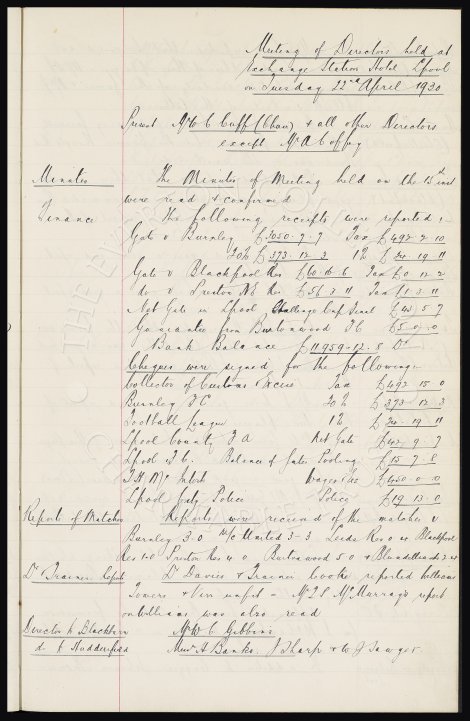 Meeting of Directors held at
Exchange Station Hotel L'pool
on Tuesday 22nd April 1930
Present Mr W C Cuff (Chair) & all other Directors
except Mr A Coffey
Minutes The Minutes of Meeting held on the 15th inst
were read & confirmed
Finance The following receipts were reported:
Gate v Burnley £3050. 7. 7 Tax £492. 2. 10
20% £373. 12. 3 1% £20. 19. 11
Gate v Blackpool Res £60. 16. 6 Tax £0. 12. 2
do v Preston NE Res £56. 3. 11 Tax £1. 3. 11
Net Gate in L'pool Challenge Cup Final 5. 7
Guarantee from Burtonwood FC £5. 0. 0
Bank Balance £11959. 12. 8 Dr
Cheques were signed for the following:
Collector of Customs & Excise Tax £492. 15. 0
Burnley FC 20% £373. 12. 3
Football League 1% £20. 19. 11
L'pool County FA Net Gate £42. 9. 7
L'pool FC. Balance of Gates Pooling £15. 7. 8
T H McIntosh Wages &c £450. 0. 0
L'pool City Police Police £19. 13. 0
Reports of Matches Reports were received of the matches v
Burnley 3.0 M/c United 3-3 Leeds Res 0.4 Blackpool
Res 1-0 Preston Res 4.0 Burtonwood 5.0 & Blundellsands
Dr & Trainer Report Dr Davies & Trainer Cooke reported Williams
& unfit - McMurray's report
on Williams was also read
Director to Blackburn Mr W C Gibbins
d. to Huddersfield Messrs A Banks. J Sharp & W J Sawyer.